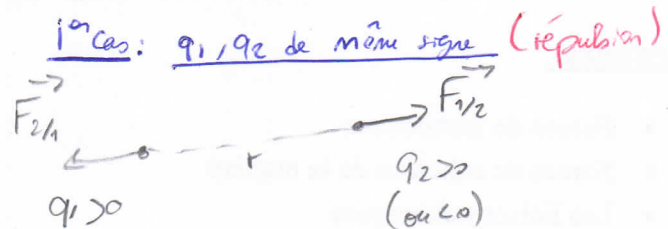 1er cas : q1, q2 de même signe (répulsion)
F2/1
F1/2
r
q1 >0
q2 >0
(ou <0)